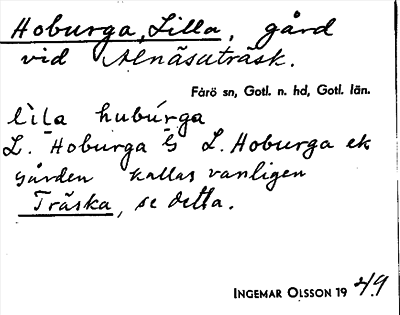 Hoburga, Lilla, gård
vid Alnäsaträsk.
Fårö sn, Gotl. n. hd, Gotl. län.
lìla hubúrga
L. Hoburga ɔ L. Hoburga ek
Gården kallas vanligen
Träska, se detta.
INGEMAR OLSSON 1949